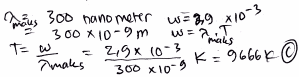 λmaks = 300 nanometer w = 2,9 × 10⁻³
= 300 × 10⁻⁹ m w = λmaks.T
T = w / λmaks = 2,9 × 10⁻³ / 300 × 10⁻⁹ K = 9666 K Ⓒ